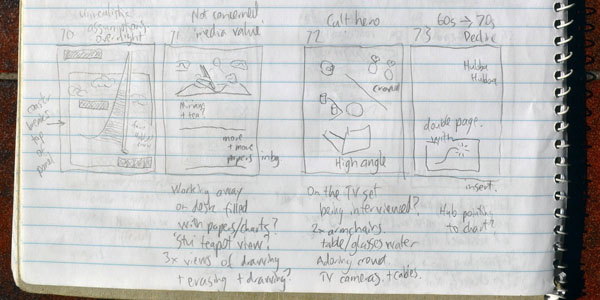 assumptions
overnight
70
Not concerned
media value
71
Cult hero
72
60s → 70s
73 Decline
type
of
panel
mins
+ tea
more
+ more
papers
crowd
High angle
Hubba
Hubba
double page
with
insert.
Working away
on desk filled
with papers/charts?
teapot view?
3x views of drawing
+ erasing + drawing?
On the TV set
being interviewed?
2x armchairs.
table/glasses water
Adoring crowd.
TV cameras. + cables.
Hub pointing
to chart?